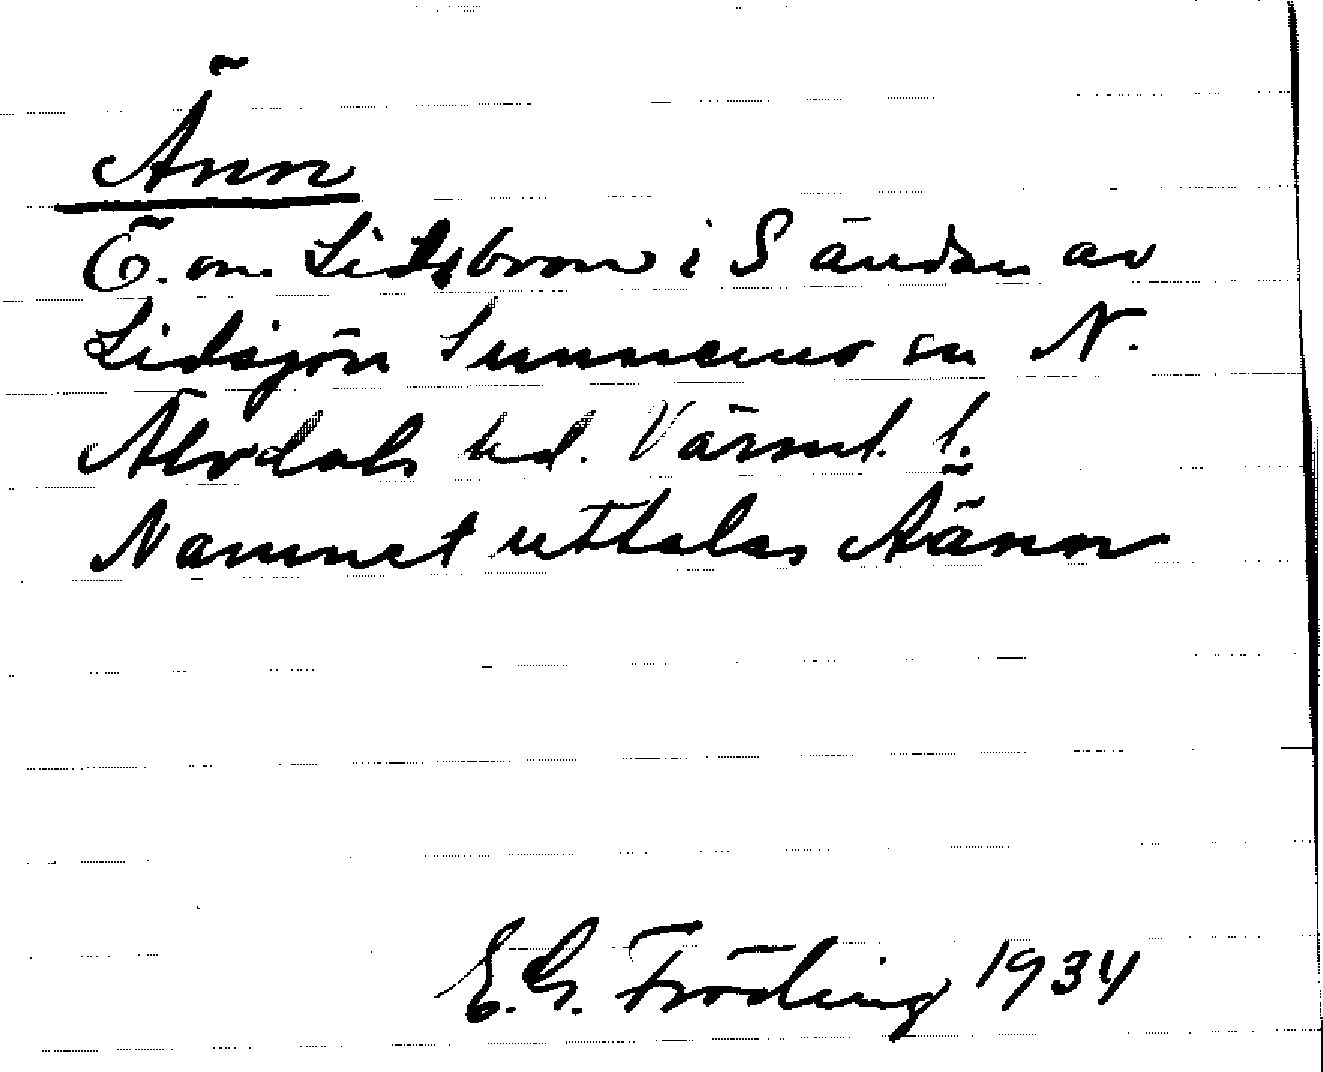 Änn
Ö. om Lidsbron i S änden av
Lidsjön Sunnemo sn N.
Älvdals hd. Värml. l.
Namnet uttalas Äänn
E. G. Fröding 1934